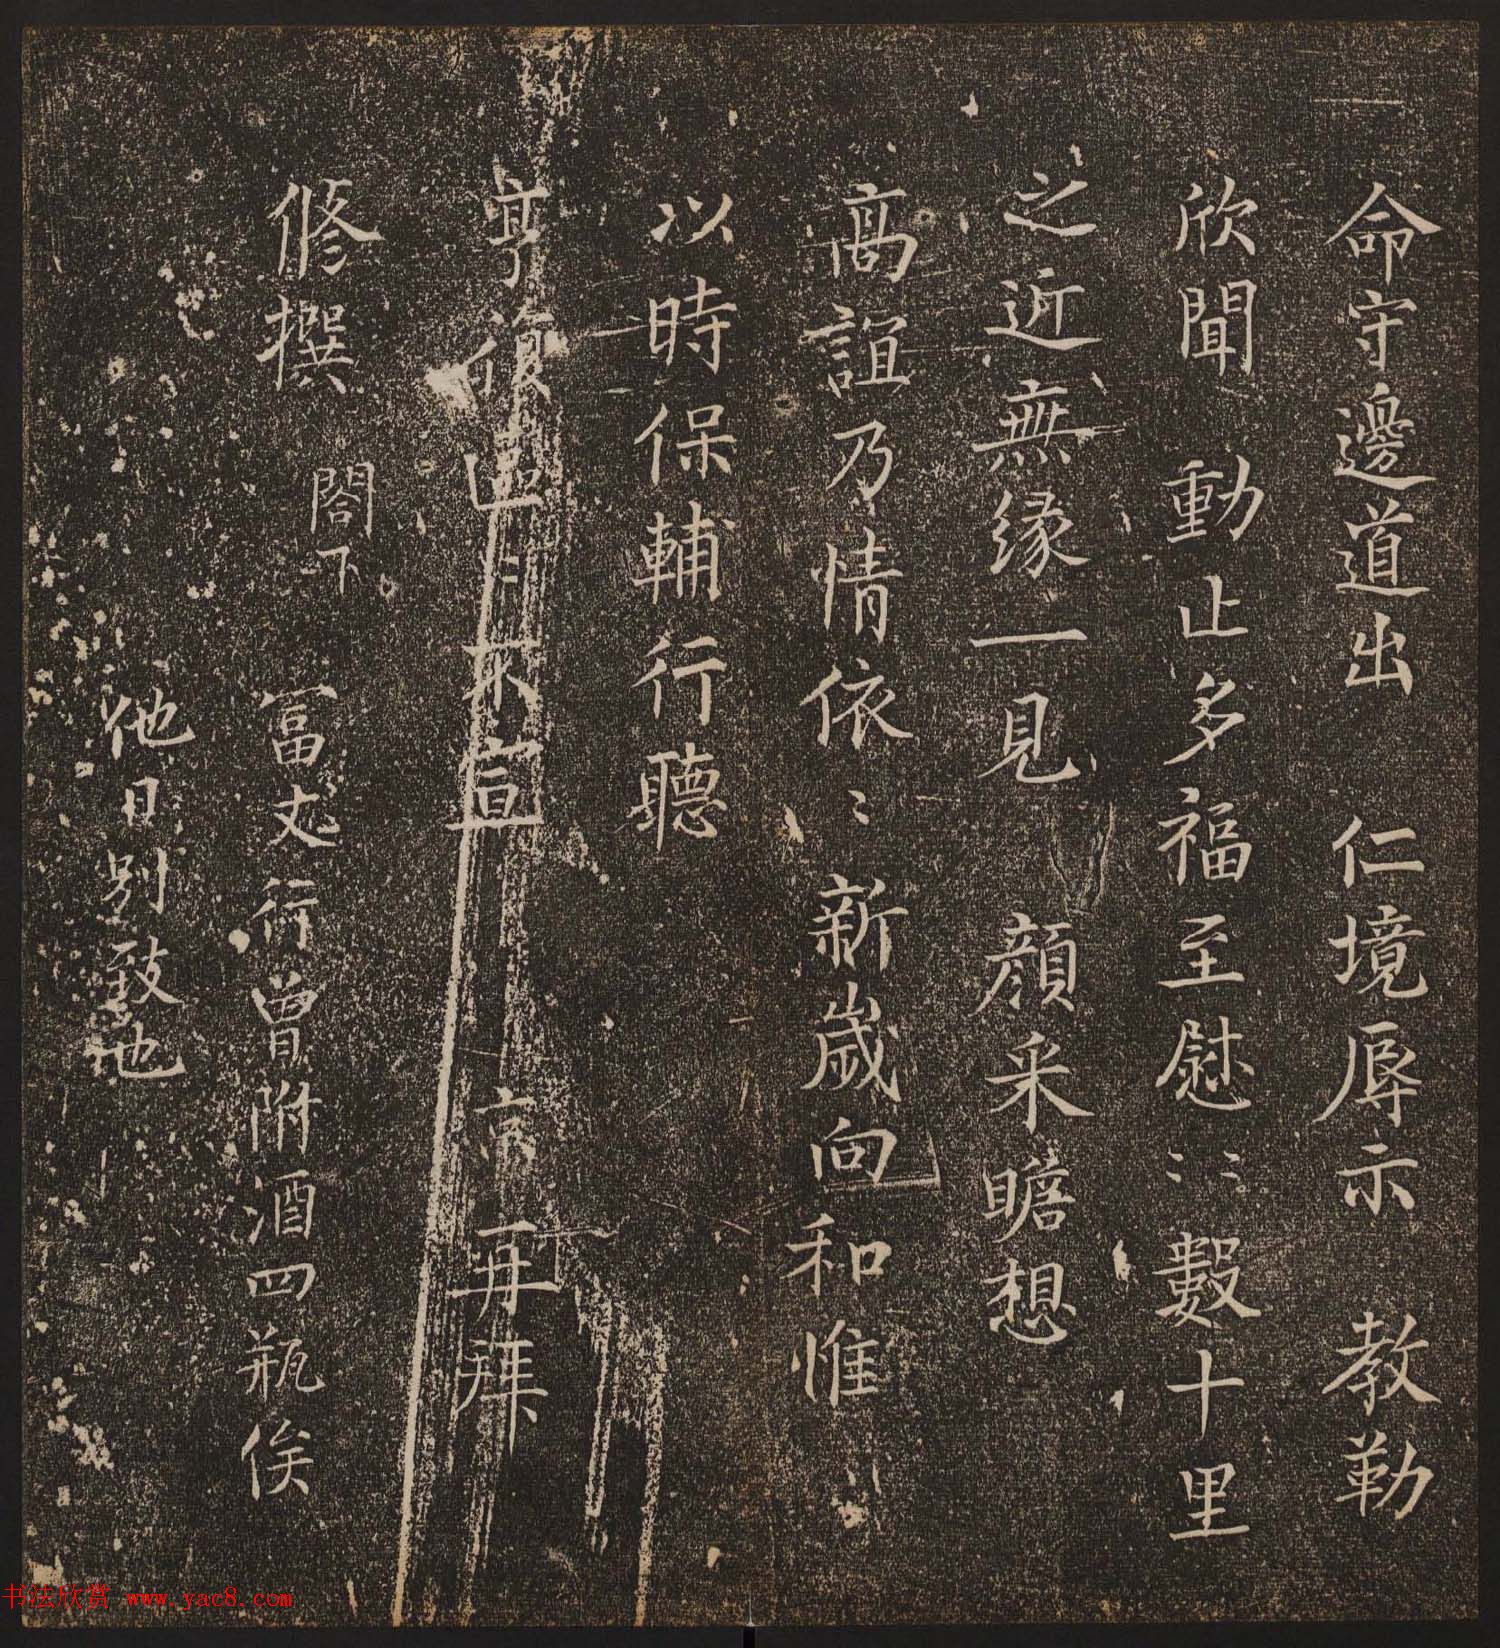 命守邊道出 仁境辱示 教勒
欣聞 動止多福至慰〻〻數十里
之近無緣一見 顏采瞻想
高誼乃情依〻新歲向和惟
以時保輔行聽
亨復 不宣 京再拜
修撰 閤下
冨丈行曾附酒四瓶俟
他日别致也
书法欣赏 www.yac8.com